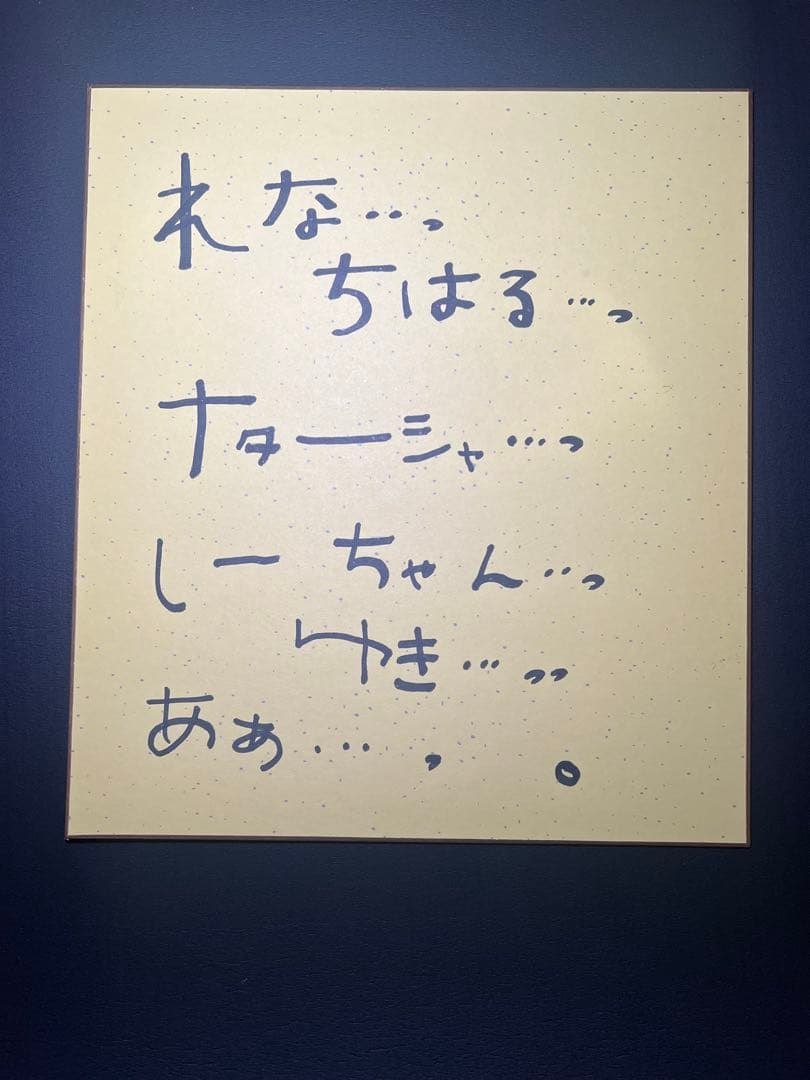 れな…っ
ちはる…っ
ナターシャ…っ
しーちゃん…っ
ゆき…っっ
あぁ…、。